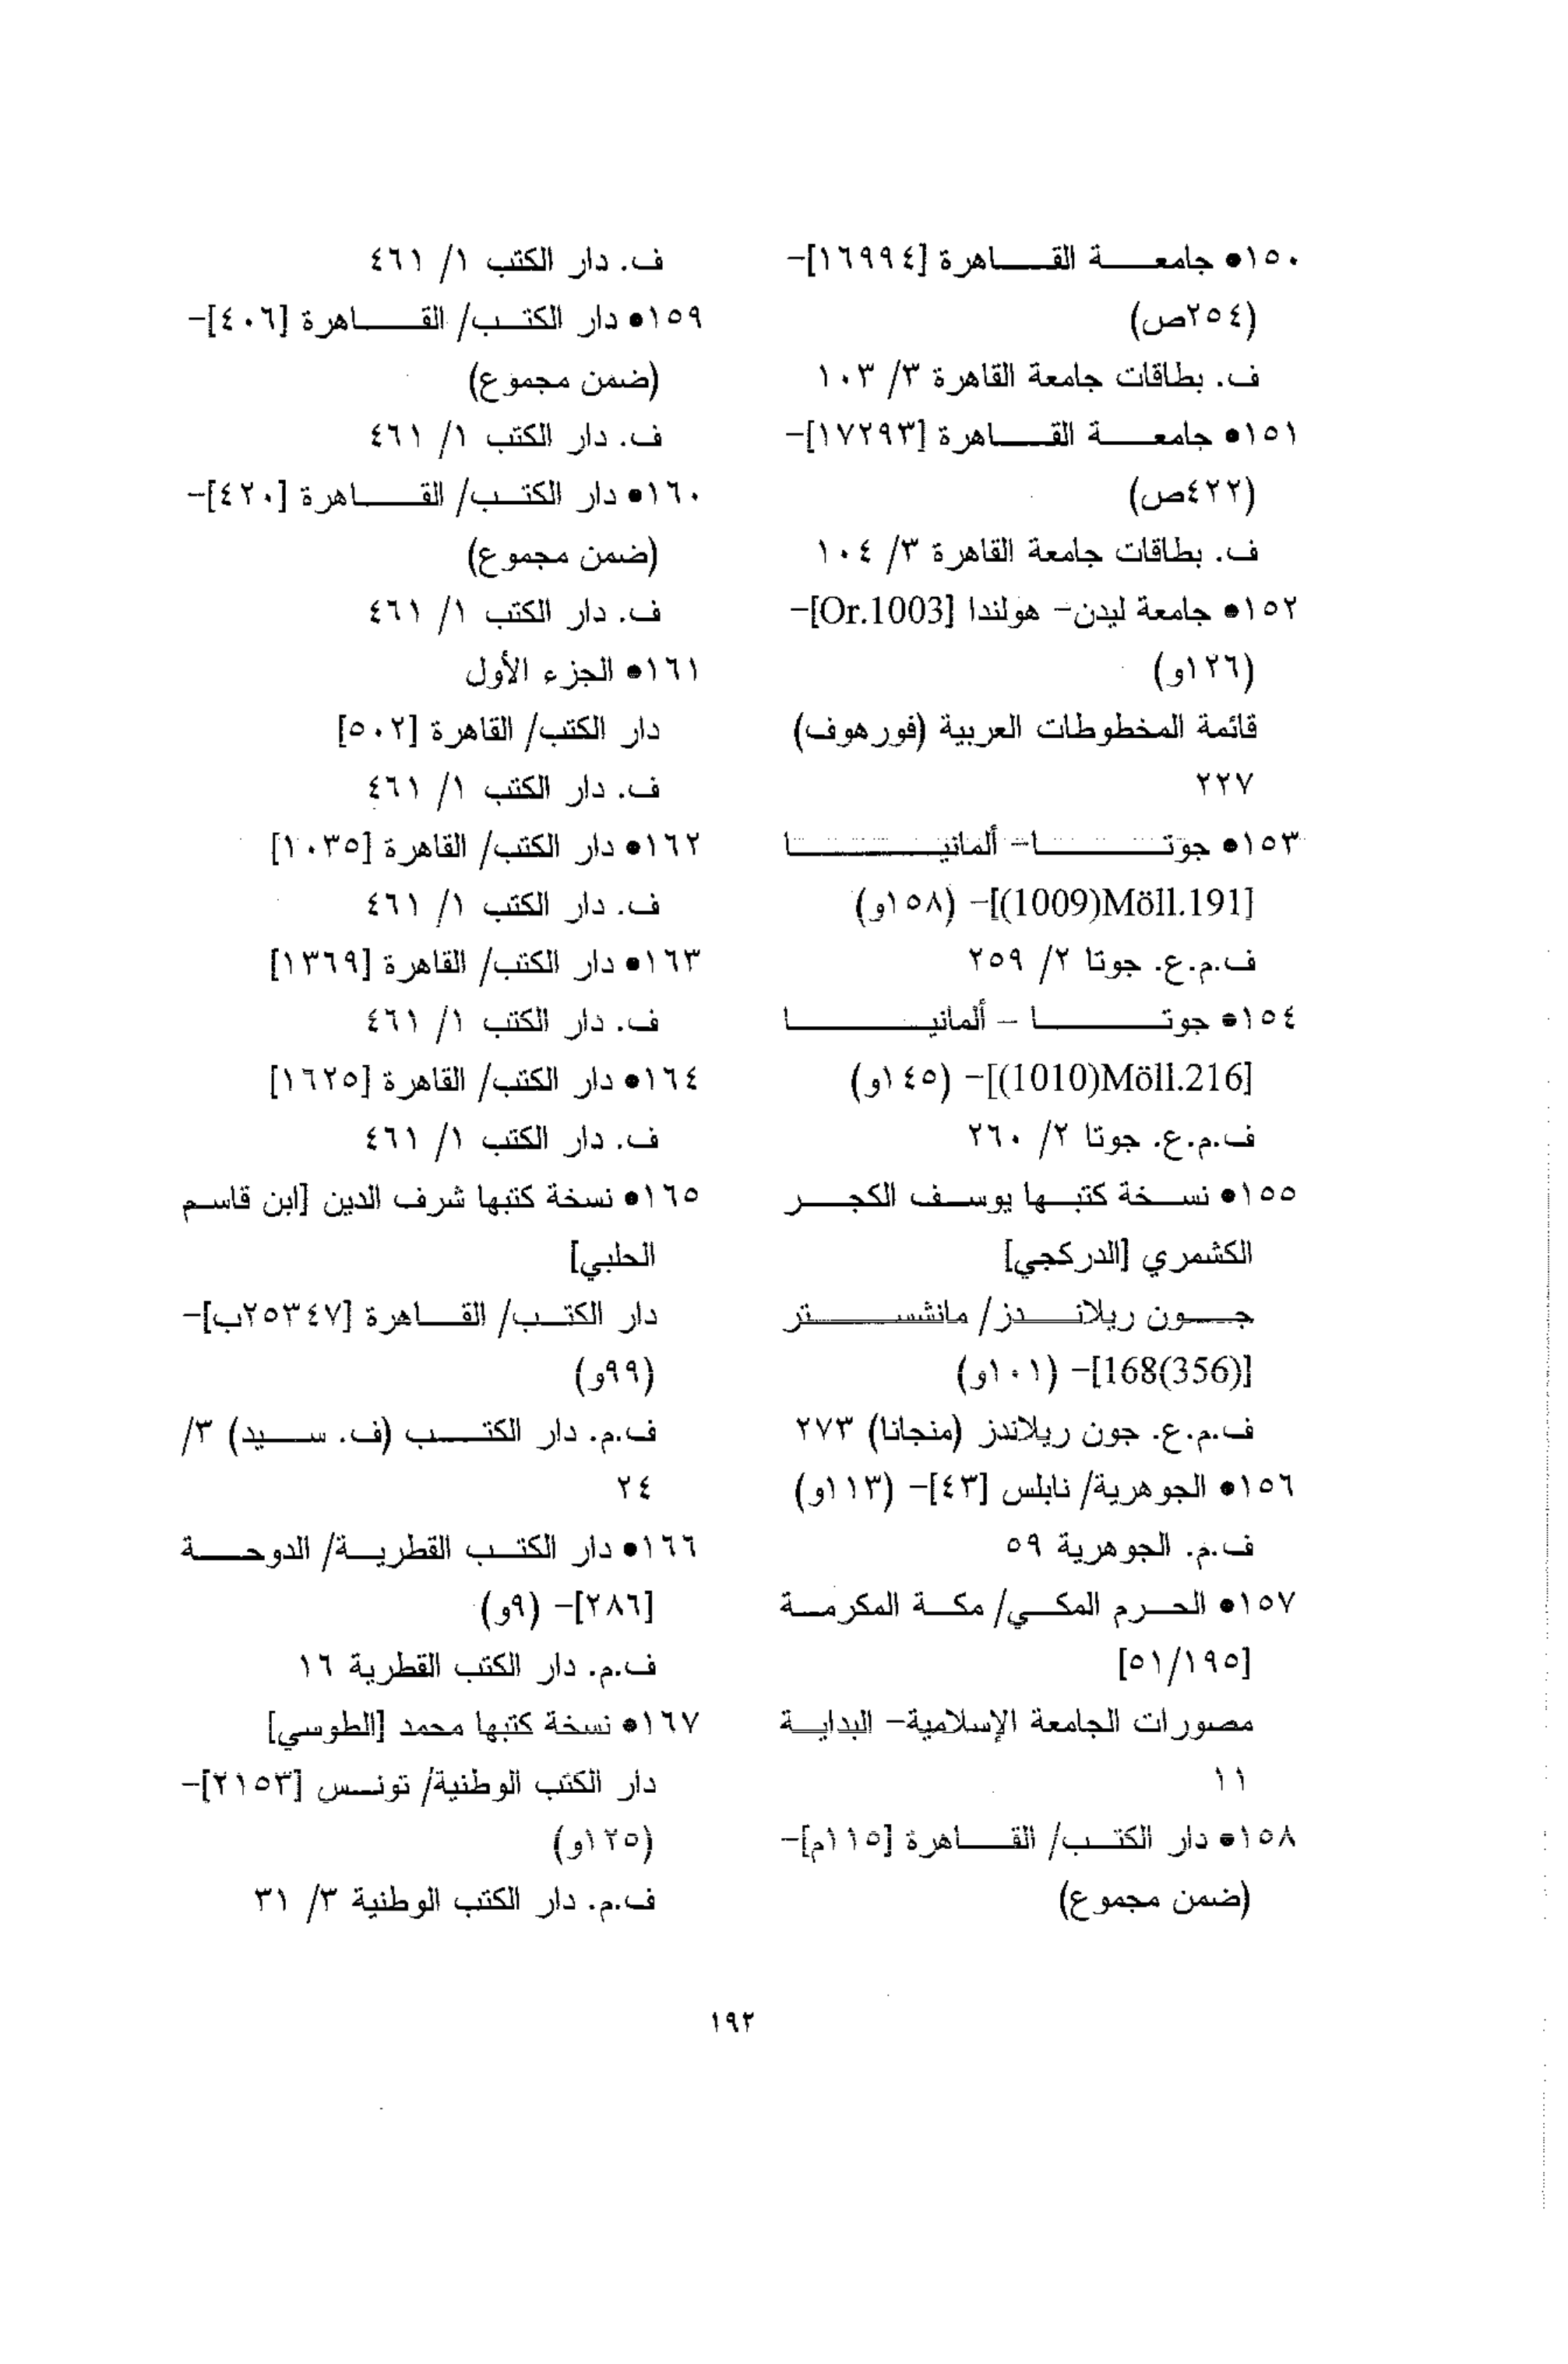 ١٥٠• جامعة القاهرة [١٦٩٩٤]-
(٢٥٤ص)
ف. بطاقات جامعة القاهرة ٣/ ١٠٣
١٥١• جامعة القاهرة [١٧٢٩٣]-
(٤٢٢ص)
ف. بطاقات جامعة القاهرة ٣/ ١٠٤
١٥٢• جامعة ليدن- هولندا [Or.1003]-
(١٢٦و)
قائمة المخطوطات العربية (فورهوف)
٢٢٧
١٥٣• جوتا- ألمانيا
[(1009)Möll.191]- (١٥٨و)
ف.م.ع. جوتا ٢/ ٢٥٩
١٥٤• جوتا - ألمانيا
[(1010)Möll.216]- (١٤٥و)
ف.م.ع. جوتا ٢/ ٢٦٠
١٥٥• نسخة كتبها يوسف الكجر
الكشمري [الدركجي]
جون ريلاندز/ مانشستر
[168(356)]- (١٠١و)
ف.م.ع. جون ريلاندز (منجانا) ٢٧٣
١٥٦• الجوهرية/ نابلس [٤٣]- (١١٣و)
ف.م. الجوهرية ٥٩
١٥٧• الحرم المكي/ مكة المكرمة
[٥١/١٩٥]
مصورات الجامعة الإسلامية- البداية
١١
١٥٨• دار الكتب/ القاهرة [١١٥م]-
(ضمن مجموع)
ف. دار الكتب ١/ ٤٦١
١٥٩• دار الكتب/ القاهرة [٤٠٦]-
(ضمن مجموع)
ف. دار الكتب ١/ ٤٦١
١٦٠• دار الكتب/ القاهرة [٤٢٠]-
(ضمن مجموع)
ف. دار الكتب ١/ ٤٦١
١٦١• الجزء الأول
دار الكتب/ القاهرة [٥٠٢]
ف. دار الكتب ١/ ٤٦١
١٦٢• دار الكتب/ القاهرة [١٠٣٥]
ف. دار الكتب ١/ ٤٦١
١٦٣• دار الكتب/ القاهرة [١٣٦٩]
ف. دار الكتب ١/ ٤٦١
١٦٤• دار الكتب/ القاهرة [١٦٢٥]
ف. دار الكتب ١/ ٤٦١
١٦٥• نسخة كتبها شرف الدين [ابن قاسم
الحلبي]
دار الكتب/ القاهرة [٢٥٣٤٧ب]-
(٩٩و)
ف.م. دار الكتب (ف. سيد) ٣/
٢٤
١٦٦• دار الكتب القطرية/ الدوحة
[٢٨٦]- (٩و)
ف.م. دار الكتب القطرية ١٦
١٦٧• نسخة كتبها محمد [الطوسي]
دار الكتب الوطنية/ تونس [٢١٥٣]-
(١٢٥و)
ف.م. دار الكتب الوطنية ٣/ ٣١
١٩٢